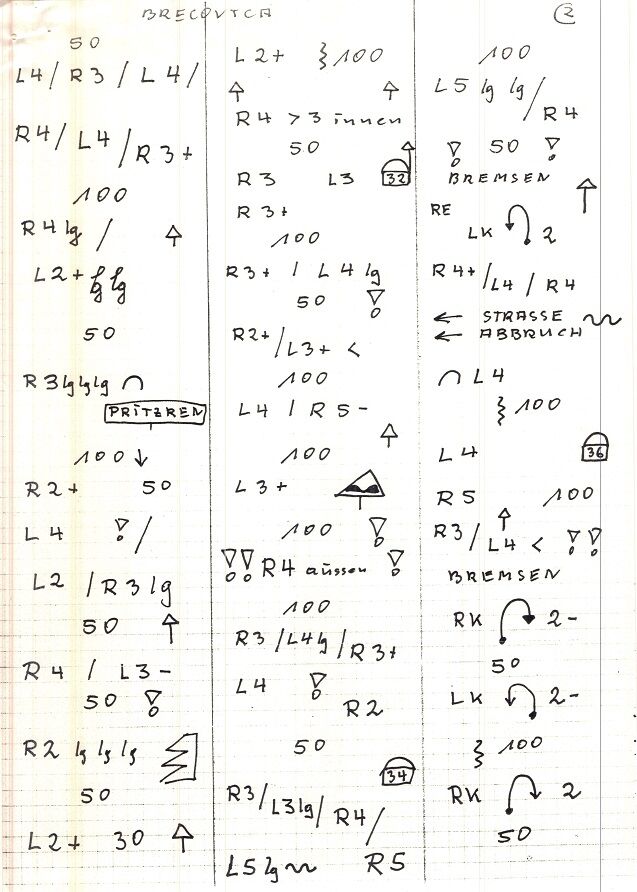 BRECOVICA
2
50
L4/ R3 / L4/
R4/ L4 / R3+
100
R4 lg /
L2+ lg lg
50
R3 lg lg lg
PRITZREN
100 ↓
R2+ 50
L4 ! /
L2 / R3 lg
50 ↑
R4 / L3-
50 !
R2 lg lg lg
50
L2+ 30 ↑
L2+ 100
↑ ↑
R4 >3 innen
50
R3 L3 32
R3+
100
R3+ / L4 lg
50 !
R2+ / L3+ <
100
L4 / R5-
100 ↑
L3+
100 !
!! R4 aüssen !
100
R3 / L4 lg / R3+
L4 ! R2
50
34
R3/ L3 lg/ R4/
L5 lg ~ R5
100
L5 lg lg / R4
! 50 !
BREMSEN ↑
RE
LK 2
R4+ / L4 / R4
← STRASSE
← ABBRUCH ~
∩ L4
100
L4 36
R5 100
↑
R3/ L4 < !!
BREMSEN
RK 2-
50
LK 2-
100
RK 2
50